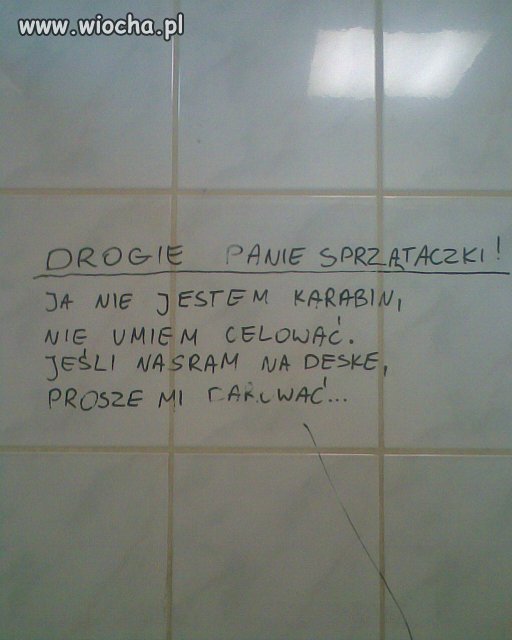 www.wiocha.pl
DROGIE PANIE SPRZĄTACZKI!
JA NIE JESTEM KARABIN,
NIE UMIEM CELOWAĆ.
JEŚLI NASRAM NA DESKE,
PROSZE MI DAROWAĆ...